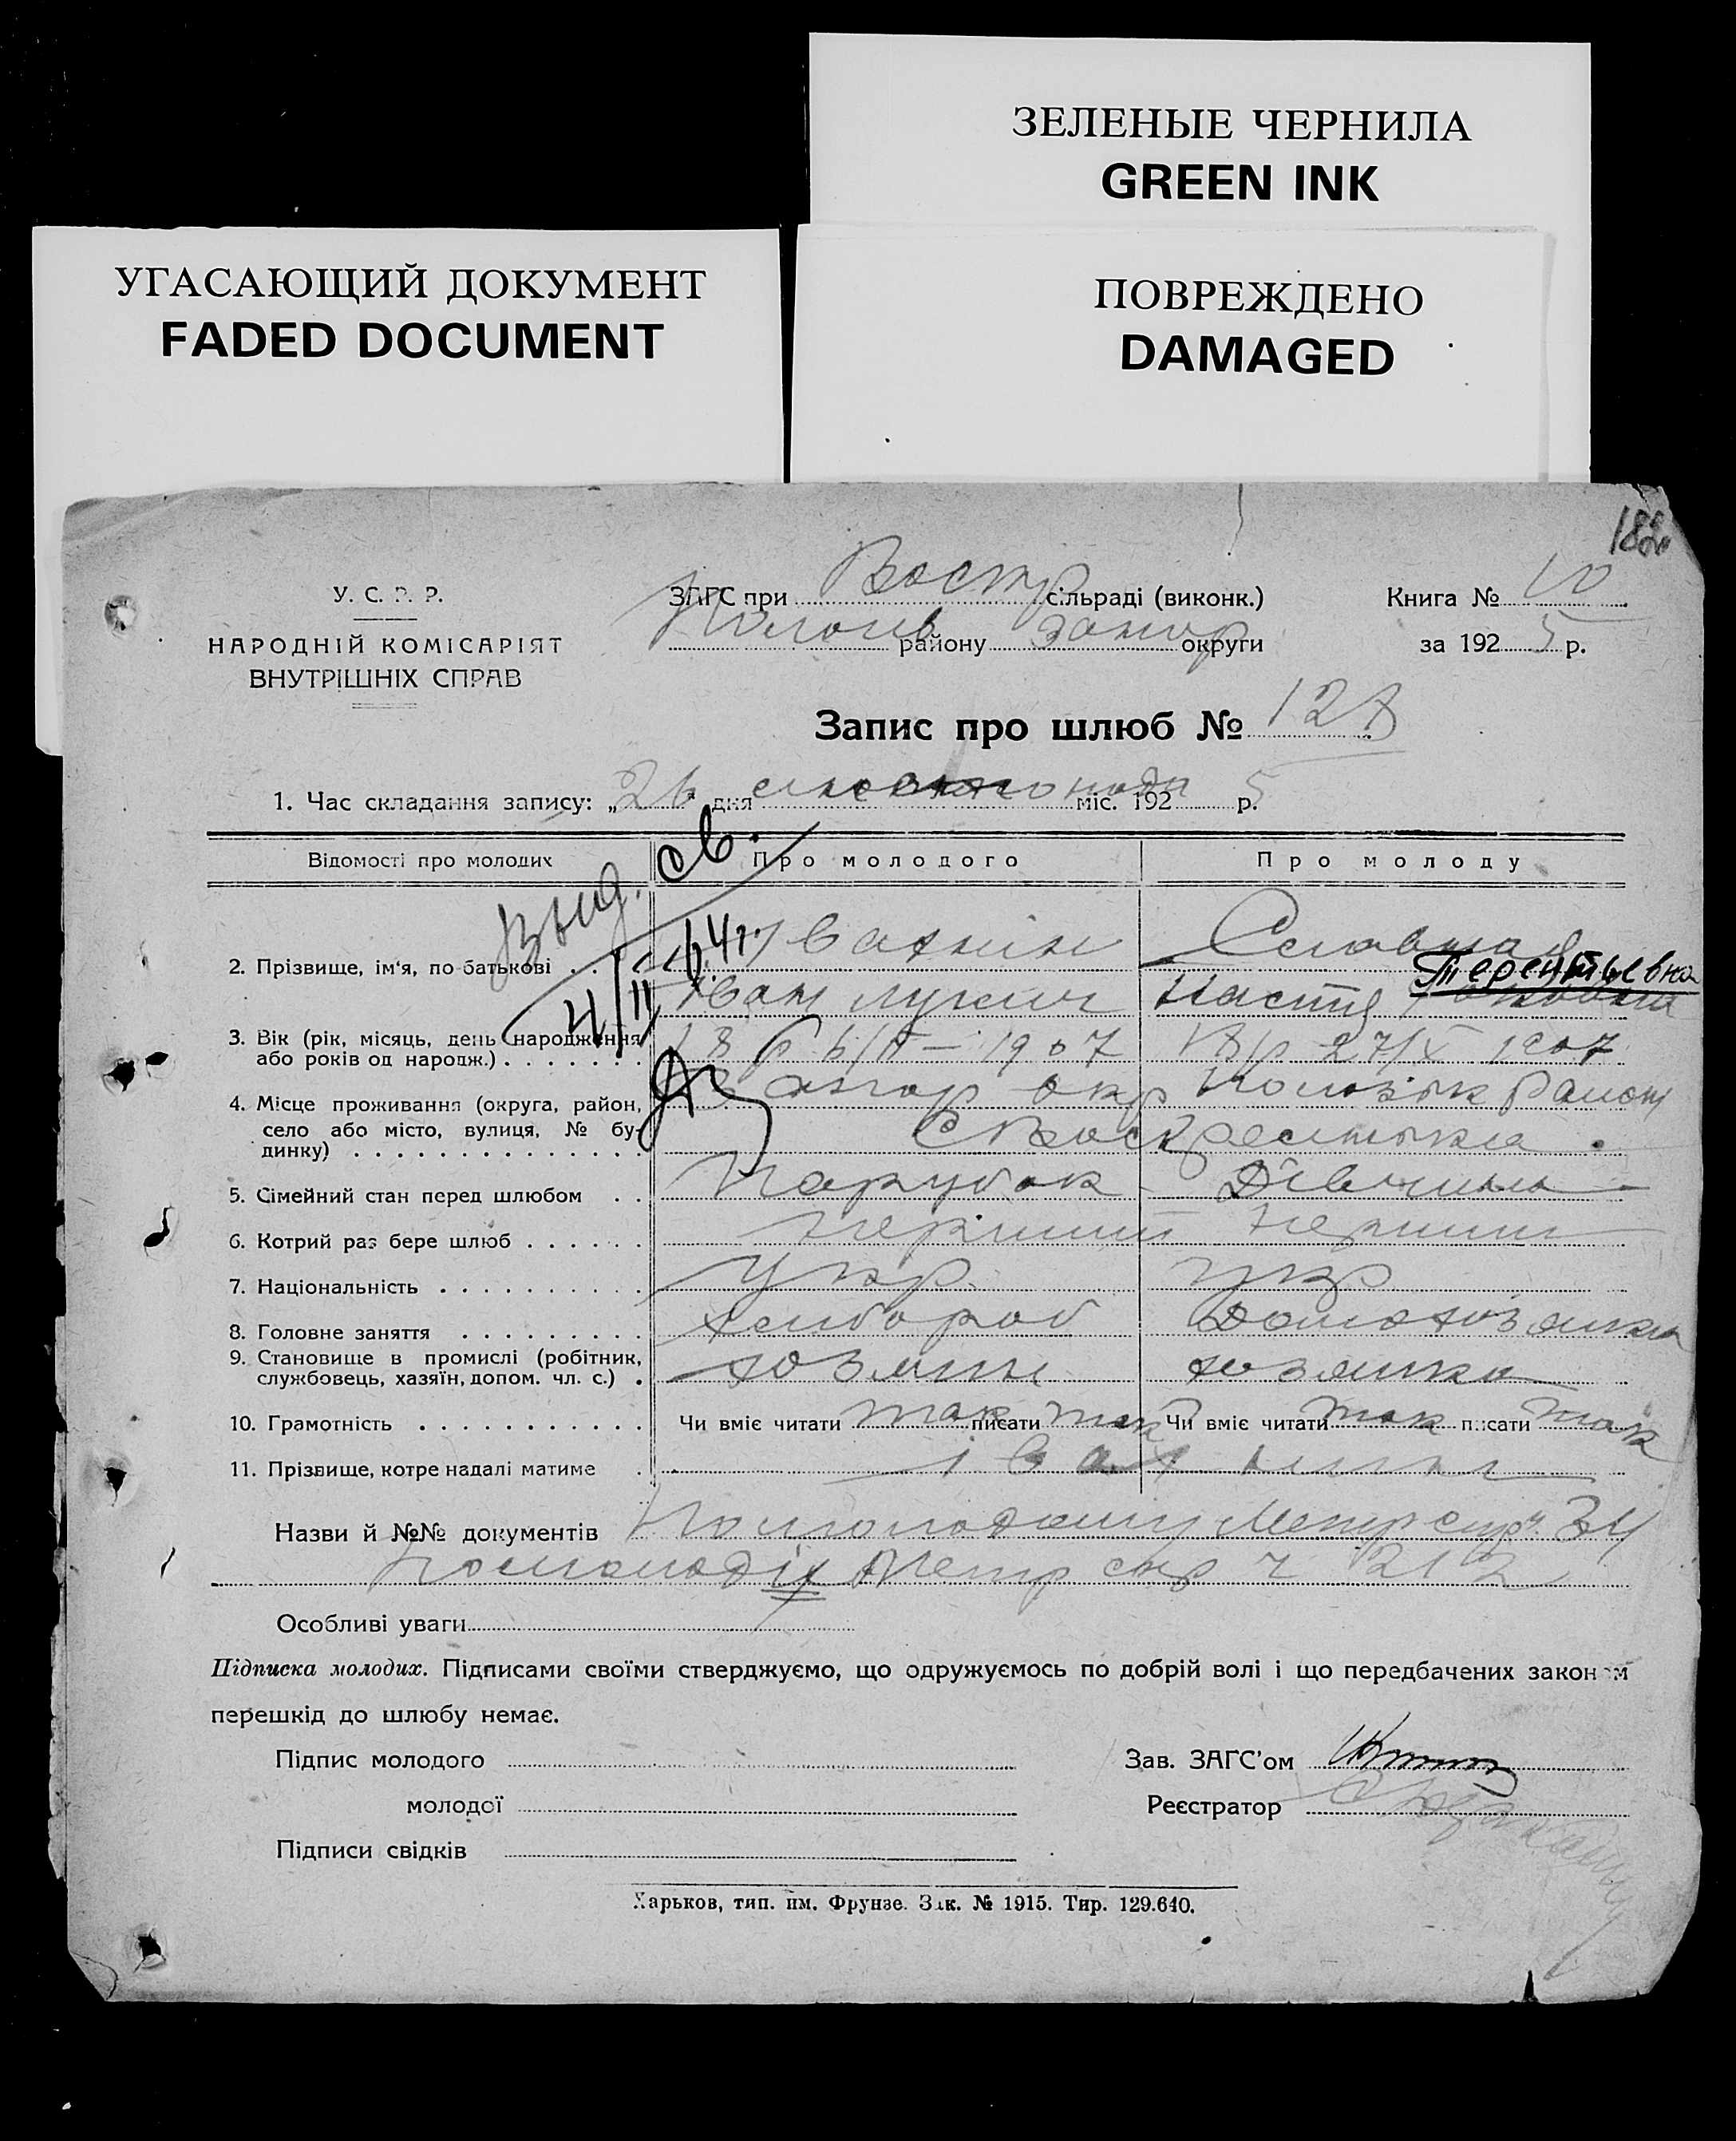 ЗЕЛЕНЫЕ ЧЕРНИЛА
GREEN INK
УГАСАЮЩИЙ ДОКУМЕНТ
FADED DOCUMENT
ПОВРЕЖДЕНО
DAMAGED
У. С. Р. Р.
НАРОДНІЙ КОМІСАРІЯТ
ВНУТРІШНІХ СПРАВ
ЗАГС при Воскр сільраді (виконк.)
Пологів району Запор округи
Книга № 10
за 1925 р.
Запис про шлюб № 128
1. Час складання запису: „26 дня листопада міс. 1925 р.
Відомості про молодих Про молодого Про молоду
выд. св.
4/II 64г.
2. Прізвище, ім'я, по-батькові . . . Івахнін
Іван Лукич Настя Терентьевна
3. Вік (рік, місяць, день народження
або років од народж.) . . . . . . . 18 р 1907 18 р 27/X 1907
4. Місце проживання (округа, район, Запор окр Пологівськ Район
село або місто, вулиця, № бу-
динку) . . . . . . . . . . . . . . . С Воскресенька
5. Сімейний стан перед шлюбом . . Парубок Дівчина
6. Котрий раз бере шлюб . . . . . . перший перший
7. Національність . . . . . . . . . . Укр. Укр
8. Головне заняття . . . . . . . . . хлібороб Домохозяйка
9. Становище в промислі (робітник,
службовець, хазяїн, допом. чл. с.) . хозяин хозяйка
10. Грамотність . . . . . . . . . . . Чи вміє читати так писати так Чи вміє читати так писати так
11. Прізвище, котре надалі матиме . Івахнини
Назви й №№ документів По молодому Метр спр ч. 34
По молодій Метр спр ч 212
Особливі уваги
Підписка молодих. Підписами своїми стверджуємо, що одружуємось по добрій волі і що передбачених законом
перешкід до шлюбу немає.
Підпис молодого
молодої
Підписи свідків
Зав. ЗАГС'ом
Реєстратор
Харьков, тип. им. Фрунзе. Зак. № 1915. Тир. 129.640.